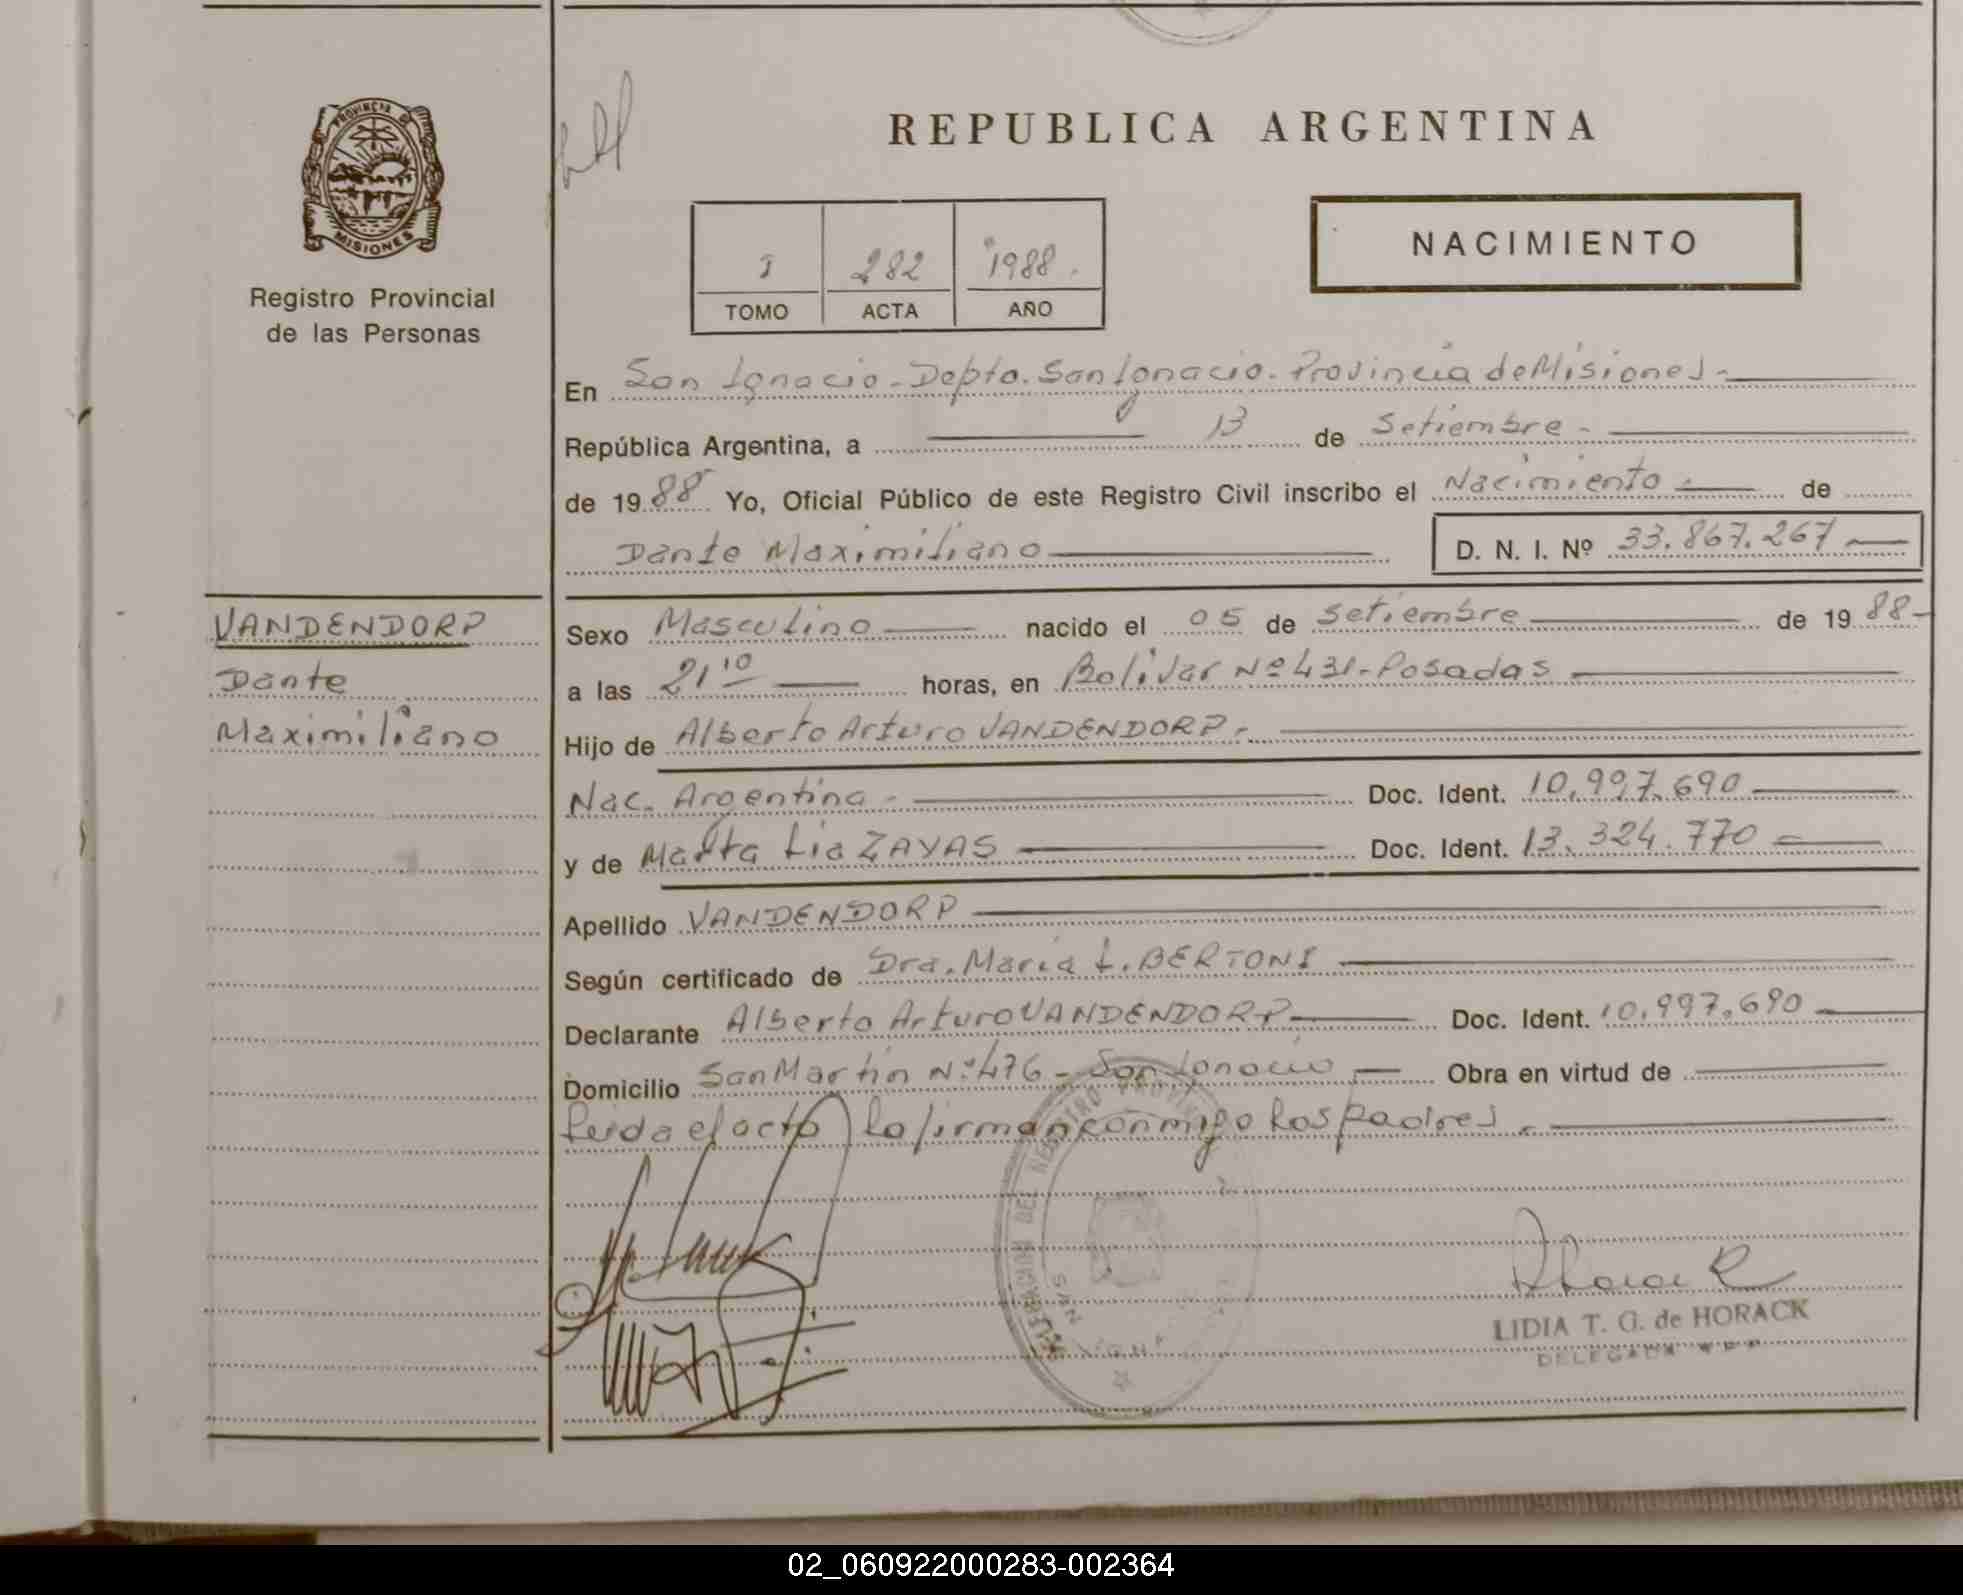 PROVINCIA DE
MISIONES
Registro Provincial
de las Personas
REPUBLICA ARGENTINA
282 1988.
TOMO ACTA AÑO
NACIMIENTO
En San Ignacio - Depto. San Ignacio - Provincia de Misiones -
República Argentina, a 13 de Setiembre -
de 19 88 Yo, Oficial Público de este Registro Civil inscribo el Nacimiento - de
Dante Maximiliano D. N. I. Nº 33.867.267
VANDENDORP
Dante
Maximiliano
Sexo Masculino nacido el 05 de Setiembre de 19 88-
a las 21 10 horas, en Bolivar Nº 431 - Posadas
Hijo de Alberto Arturo VANDENDORP -
Nac. Argentina - Doc. Ident. 10.997.690
y de Marta Lia ZAYAS Doc. Ident. 13.324.770
Apellido VANDENDORP
Según certificado de Dra. Maria L. BERTONI
Declarante Alberto Arturo VANDENDORP Doc. Ident. 10.997.690
Domicilio San Martin Nº 476 - San Ignacio Obra en virtud de
Leida el acta la firman conmigo los Padres.
DEL REGISTRO PROVIN
SAN
LIDIA T. G. de HORACK
DELEGADA
02_060922000283-002364